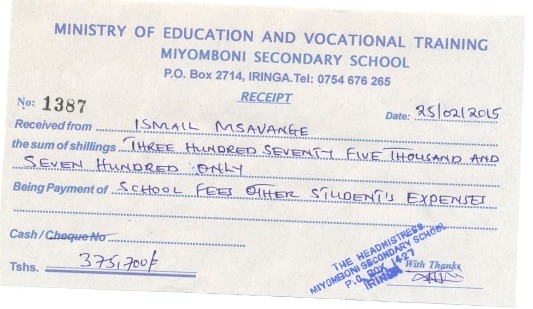 MINISTRY OF EDUCATION AND VOCATIONAL TRAINING
MIYOMBONI SECONDARY SCHOOL
P.O. Box 2714, IRINGA.Tel: 0754 676 265
RECEIPT
No: 1387
Date: 25/02/2015
Received from ISMAIL MSAVANGE
the sum of shillings THREE HUNDRED SEVENTY FIVE THOUSAND AND
SEVEN HUNDRED ONLY
Being Payment of SCHOOL FEES OTHER STUDENT'S EXPENSES
Cash / Cheque No
Tshs. 375,700/=
THE HEADMISTRESS
MIYOMBONI SECONDARY SCHOOL
P.O. BOX 1427
IRINGA
With Thanks